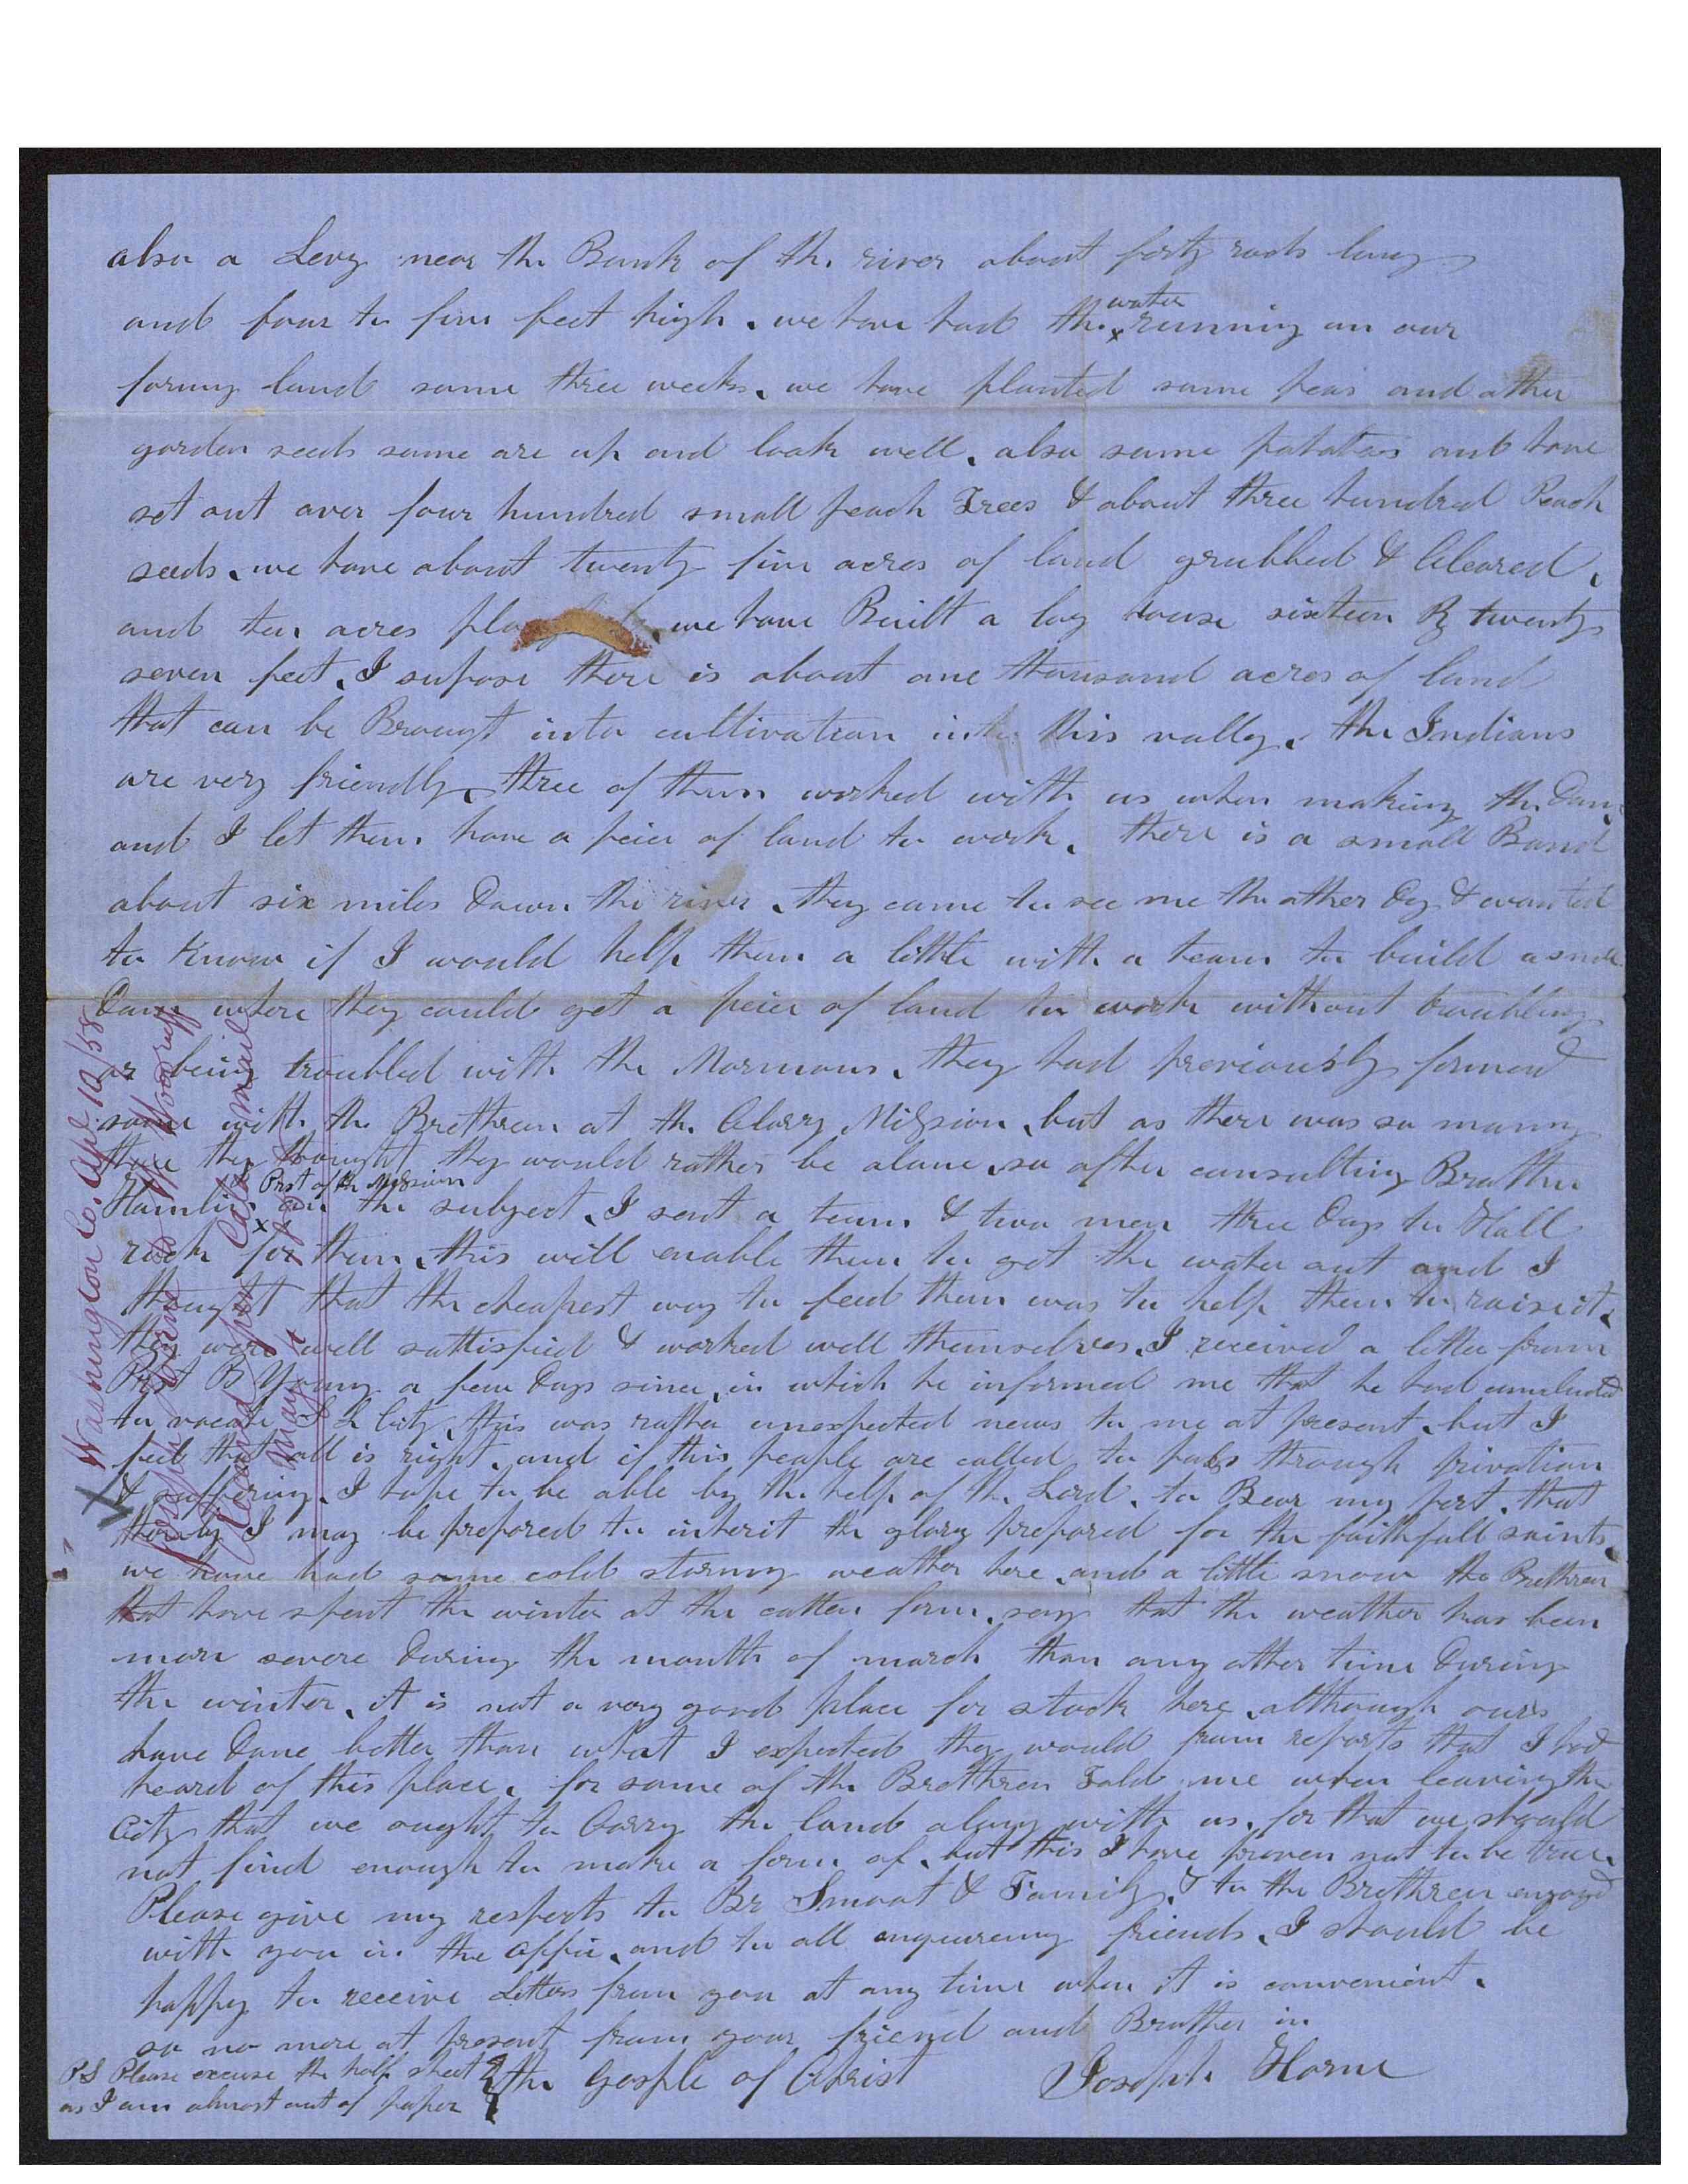 also a Levy near the Bank of the river about forty rods long
and four to five feet high. we have had the water running on our
farming land some three weeks. we have planted some peas and other
garden seeds some are up and look well. also some potatoes and have
set out over four hundred small peach Trees & about three hundred Peach
seeds. we have about twenty five acres of land grubbed & Cleared.
and ten acres we have Built a log house sixteen By twenty
seven feet. I supose there is about one thousand acres of land
that can be Brought into cultivation in this vally. the Indians
are very friendly three of them worked with us when making the Dam,
and I let them have a peice of land to work. there is a small Band
about six miles Down the river. they came to see me the other Day & wanted
to Know if I would help them a little with a team to build a
Dam where they could get a peice of land to work without troubling
or being troubled with the Mormons. they had previously farmed
some with the Brethren at the Clarry Mission, but as there was so many
there they thought they would rather be alone. so after consulting Brother
Hamlin Prst of the Mission on the subject. I sent a team & two men three Days to Hall
rock for them. this will enable them to get the water out and I
thought that the cheapest way to feed them was to help them to raise it.
they were well sattisfied & worked well themselves. I received a letter from
Prst B Young a few Days since, in which he informed me that he had concluded
to vacate S L City, this was rather unexpected news to me at present, but I
feel that all is right. and if this people are called to pass through privation
& suffering. I hope to be able by the help of the Lord. to Bear my part. that
thereby I may be prepared to inherit the glory prepared for the faithfull saints.
we have had some cold stormy weather here, and a little snow the Brethren
that have spent the winter at the cotten farm. say that the weather has been
more severe During the month of march than any other time During
the winter. it is not a very good place for stock here, although ours
have Done better than what I expected they would from reports that I had
heard of this place. for some of the Brethren Told me when leaving the
City that we ought to Carry the land along with us. for that we should
not find enough to make a farm of. but this I have proven not to be true.
Please give my respects to Br Smoot & Family. & to the Brethren engagd
with you in the office. and to all enquireing friends. I should be
happy to receive Letters from you at any time when it is convenient.
so no more at present from your friend and Brother in
the Gosple of Christ Joseph Horne
PS Please excuse the half sheet
as I am almost out of paper
Washington Co. Apl 10/58
Joseph Horne to W Woodruff
Received per Cala mail
May 1st 1858